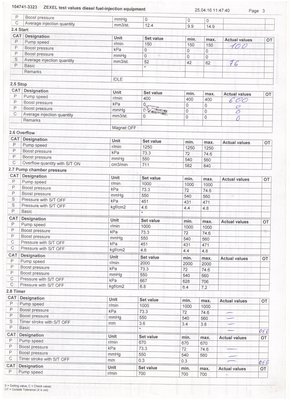 104741-3323 ZEXEL test values diesel fuel-injection equipment 25.04.16 11:47:40 Page 3
P Boost pressure mmHg 0 0 0
C Average injection quantity mm3/st. 12.4 9.9 14.9
2.4 Start
CAT Designation Unit Set value min. max. Actual values OT
P Pump speed r/min 150 150 150 100
P Boost pressure kPa 0 0 0
P Boost pressure mmHg 0 0 0
S Average injection quantity mm3/st. 52 42 62 76
P Basic
Remarks
IDLE
2.5 Stop
CAT Designation Unit Set value min. max. Actual values OT
P Pump speed r/min 400 400 400 600
P Boost pressure kPa 0
P Boost pressure mmHg 0
C Average injection quantity mm3/st. 0
Remarks
Magnet OFF
2.6 Overflow
CAT Designation Unit Set value min. max. Actual values OT
P Pump speed r/min 1250 1250 1250
P Boost pressure kPa 73.3 72 74.6
P Boost pressure mmHg 550 540 560
Overflow quantity with S/T ON cm3/min 711 582 840
2.7 Pump chamber pressure
CAT Designation Unit Set value min. max. Actual values OT
P Pump speed r/min 1000 1000 1000
P Boost pressure kPa 73.3 72 74.6
P Boost pressure mmHg 550 540 560
Pressure with S/T OFF kPa 451 431 471
Pressure with S/T OFF kgf/cm2 4.6 4.4 4.8
P Basic
CAT Designation Unit Set value min. max. Actual values OT
P Pump speed r/min 1000 1000 1000
P Boost pressure kPa 73.3 72 74.6
P Boost pressure mmHg 550 540 560
Pressure with S/T OFF kPa 451 431 471
Pressure with S/T OFF kgf/cm2 4.6 4.4 4.8
CAT Designation Unit Set value min. max. Actual values OT
P Pump speed r/min 2000 2000 2000
P Boost pressure kPa 73.3 72 74.6
P Boost pressure mmHg 550 540 560
C Pressure with S/T OFF kPa 667 628 706
C Pressure with S/T OFF kgf/cm2 6.8 6.4 7.2
2.8 Timer
CAT Designation Unit Set value min. max. Actual values OT
P Pump speed r/min 1000 1000 1000
P Boost pressure kPa 73.3 72 74.6
P Boost pressure mmHg 550 540 560
Timer stroke with S/T OFF mm 3.6 3.4 3.8
P Basic
CAT Designation Unit Set value min. max. Actual values OT
P Pump speed r/min 670 670 670
P Boost pressure kPa 73.3 72 74.6
P Boost pressure mmHg 550 540 560
C Timer stroke with S/T OFF mm 0.3 0.3
CAT Designation Unit Set value min. max. Actual values OT
P Pump speed r/min 700 700 700